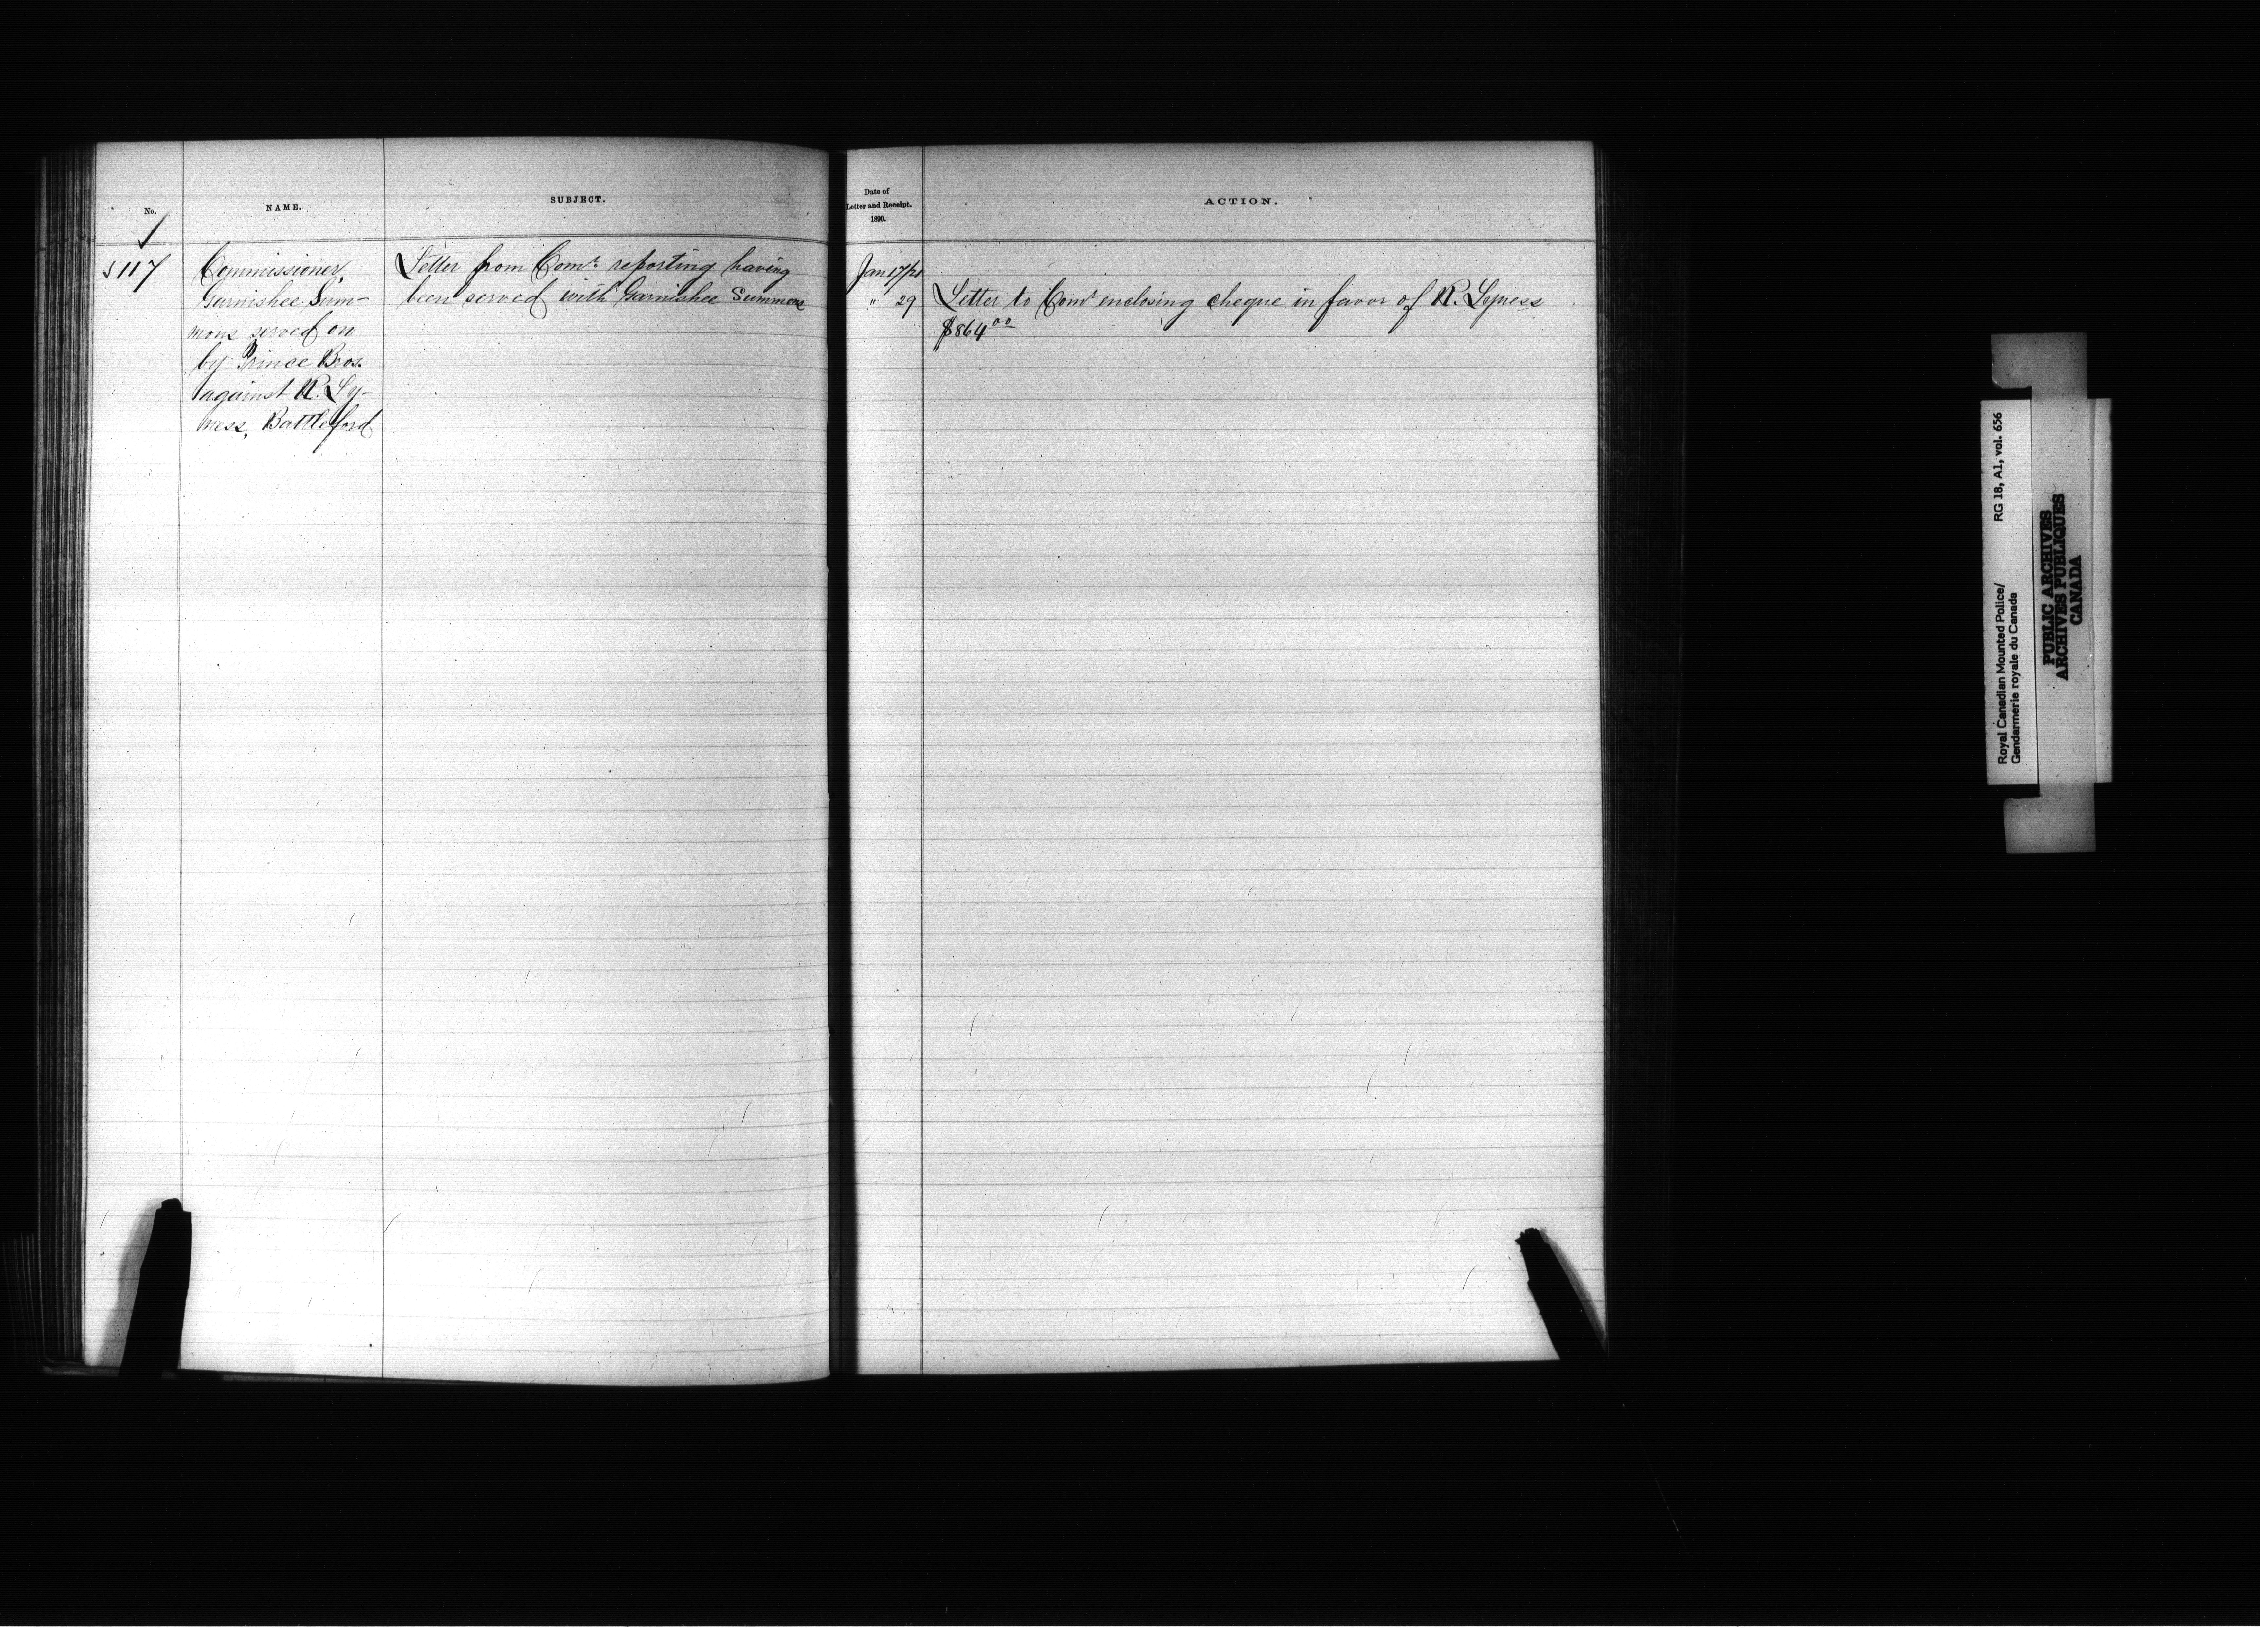 No.
NAME.
SUBJECT.
117
Commissioner,
Garnishee Sum-
mons served on
by Prince Bros.
against R. Ly-
ness, Battleford
Letter from Comr. reporting having
been served with Garnishee Summons
Date of
Letter and Receipt.
1890.
ACTION.
Jan 17/21
" 29
Letter to Comr enclosing cheque in favor of R. Lyness
$864 00
Royal Canadian Mounted Police/
Gendarmerie royale du Canada
RG 18, A1, vol. 656
PUBLIC ARCHIVES
ARCHIVES PUBLIQUES
CANADA